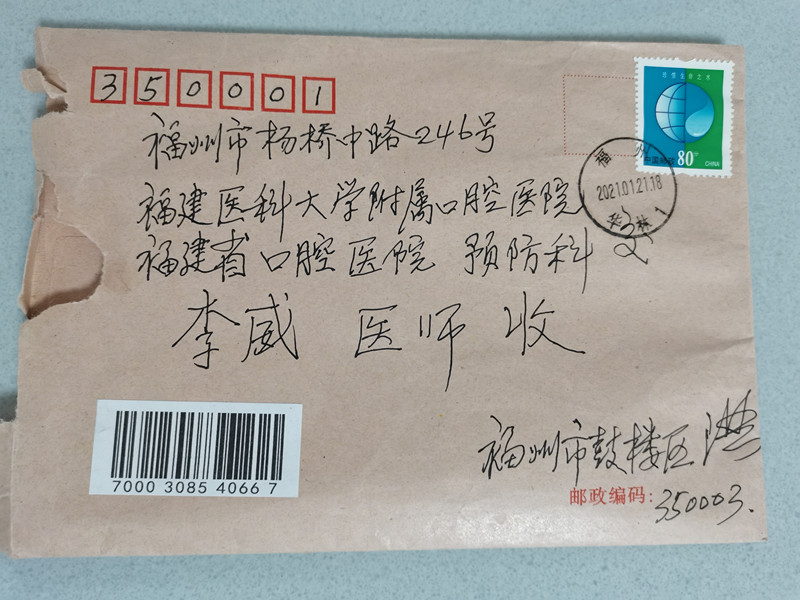 350001
福州市杨桥中路246号
福建医科大学附属口腔医院
福建省口腔医院 预防科
李威 医师 收
中国邮政
80分
CHINA
福州
2021.01.21.18
华林 1
7000 3085 4066 7
福州市鼓楼区
邮政编码:
350003.